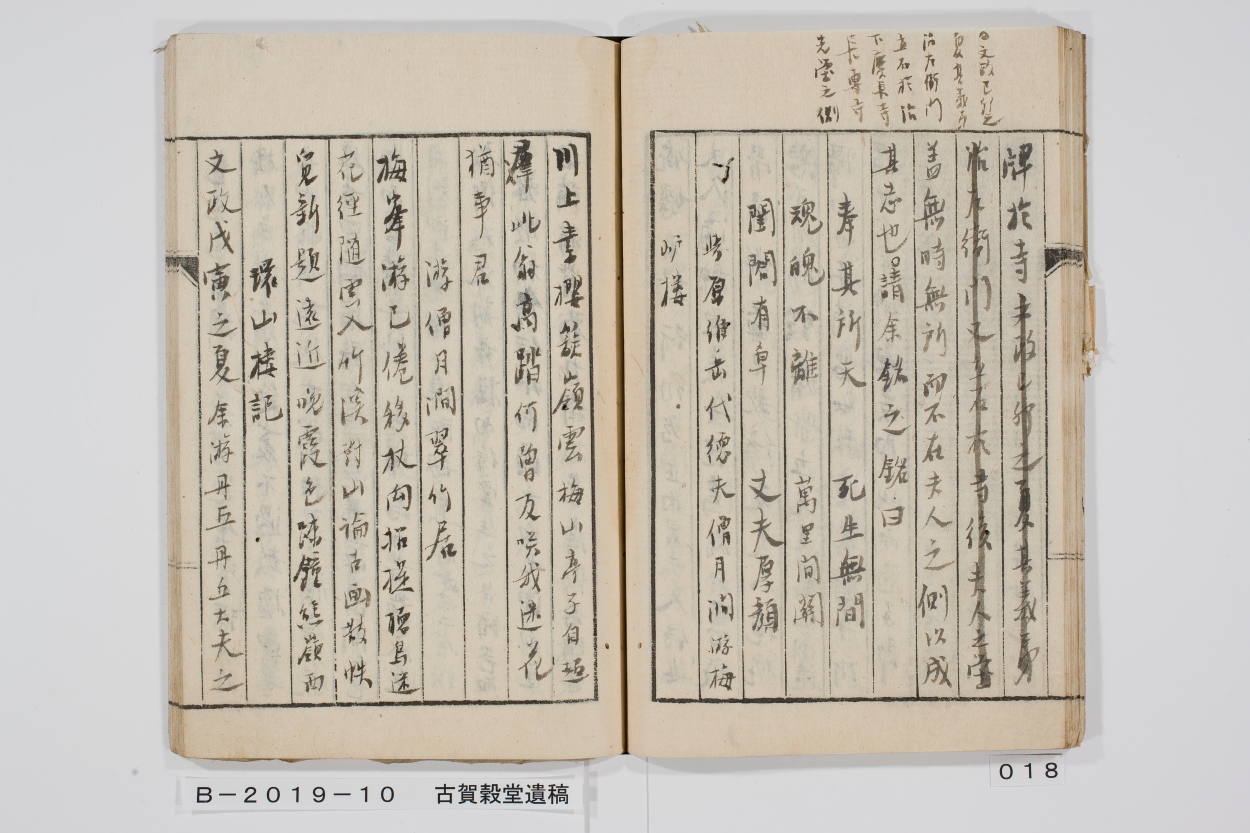 日文政己卯之
夏其義弟
治左衛門
立石於治
下慶長寺
長專寺
先塋之側
牌於寺文政己卯之夏其義弟
治左衛門又立石於寺後夫人之塋
蓋無時無所而不在夫人之側以成
其志也請余銘之銘曰
奉其所天 死生無間
魂魄不離 萬里間關
閨閤有章 丈夫厚顏
与皆原維岳代德夫僧月澗游梅
山樓
川上書櫻簇嶺雲梅山亭子自超
群此翁高踏何曾友咲我迷花
猶事君
游僧月澗翠竹居
梅峯游已倦移杖向招提聽鳥迷
花徑随雲入竹溪對山論古画散帙
覓新題遠近晚霞色踈鐘熊嶺西
環山樓記
文政戊寅之夏余游丹丘丹丘大夫之
B-2019-10 古賀穀堂遺稿
018